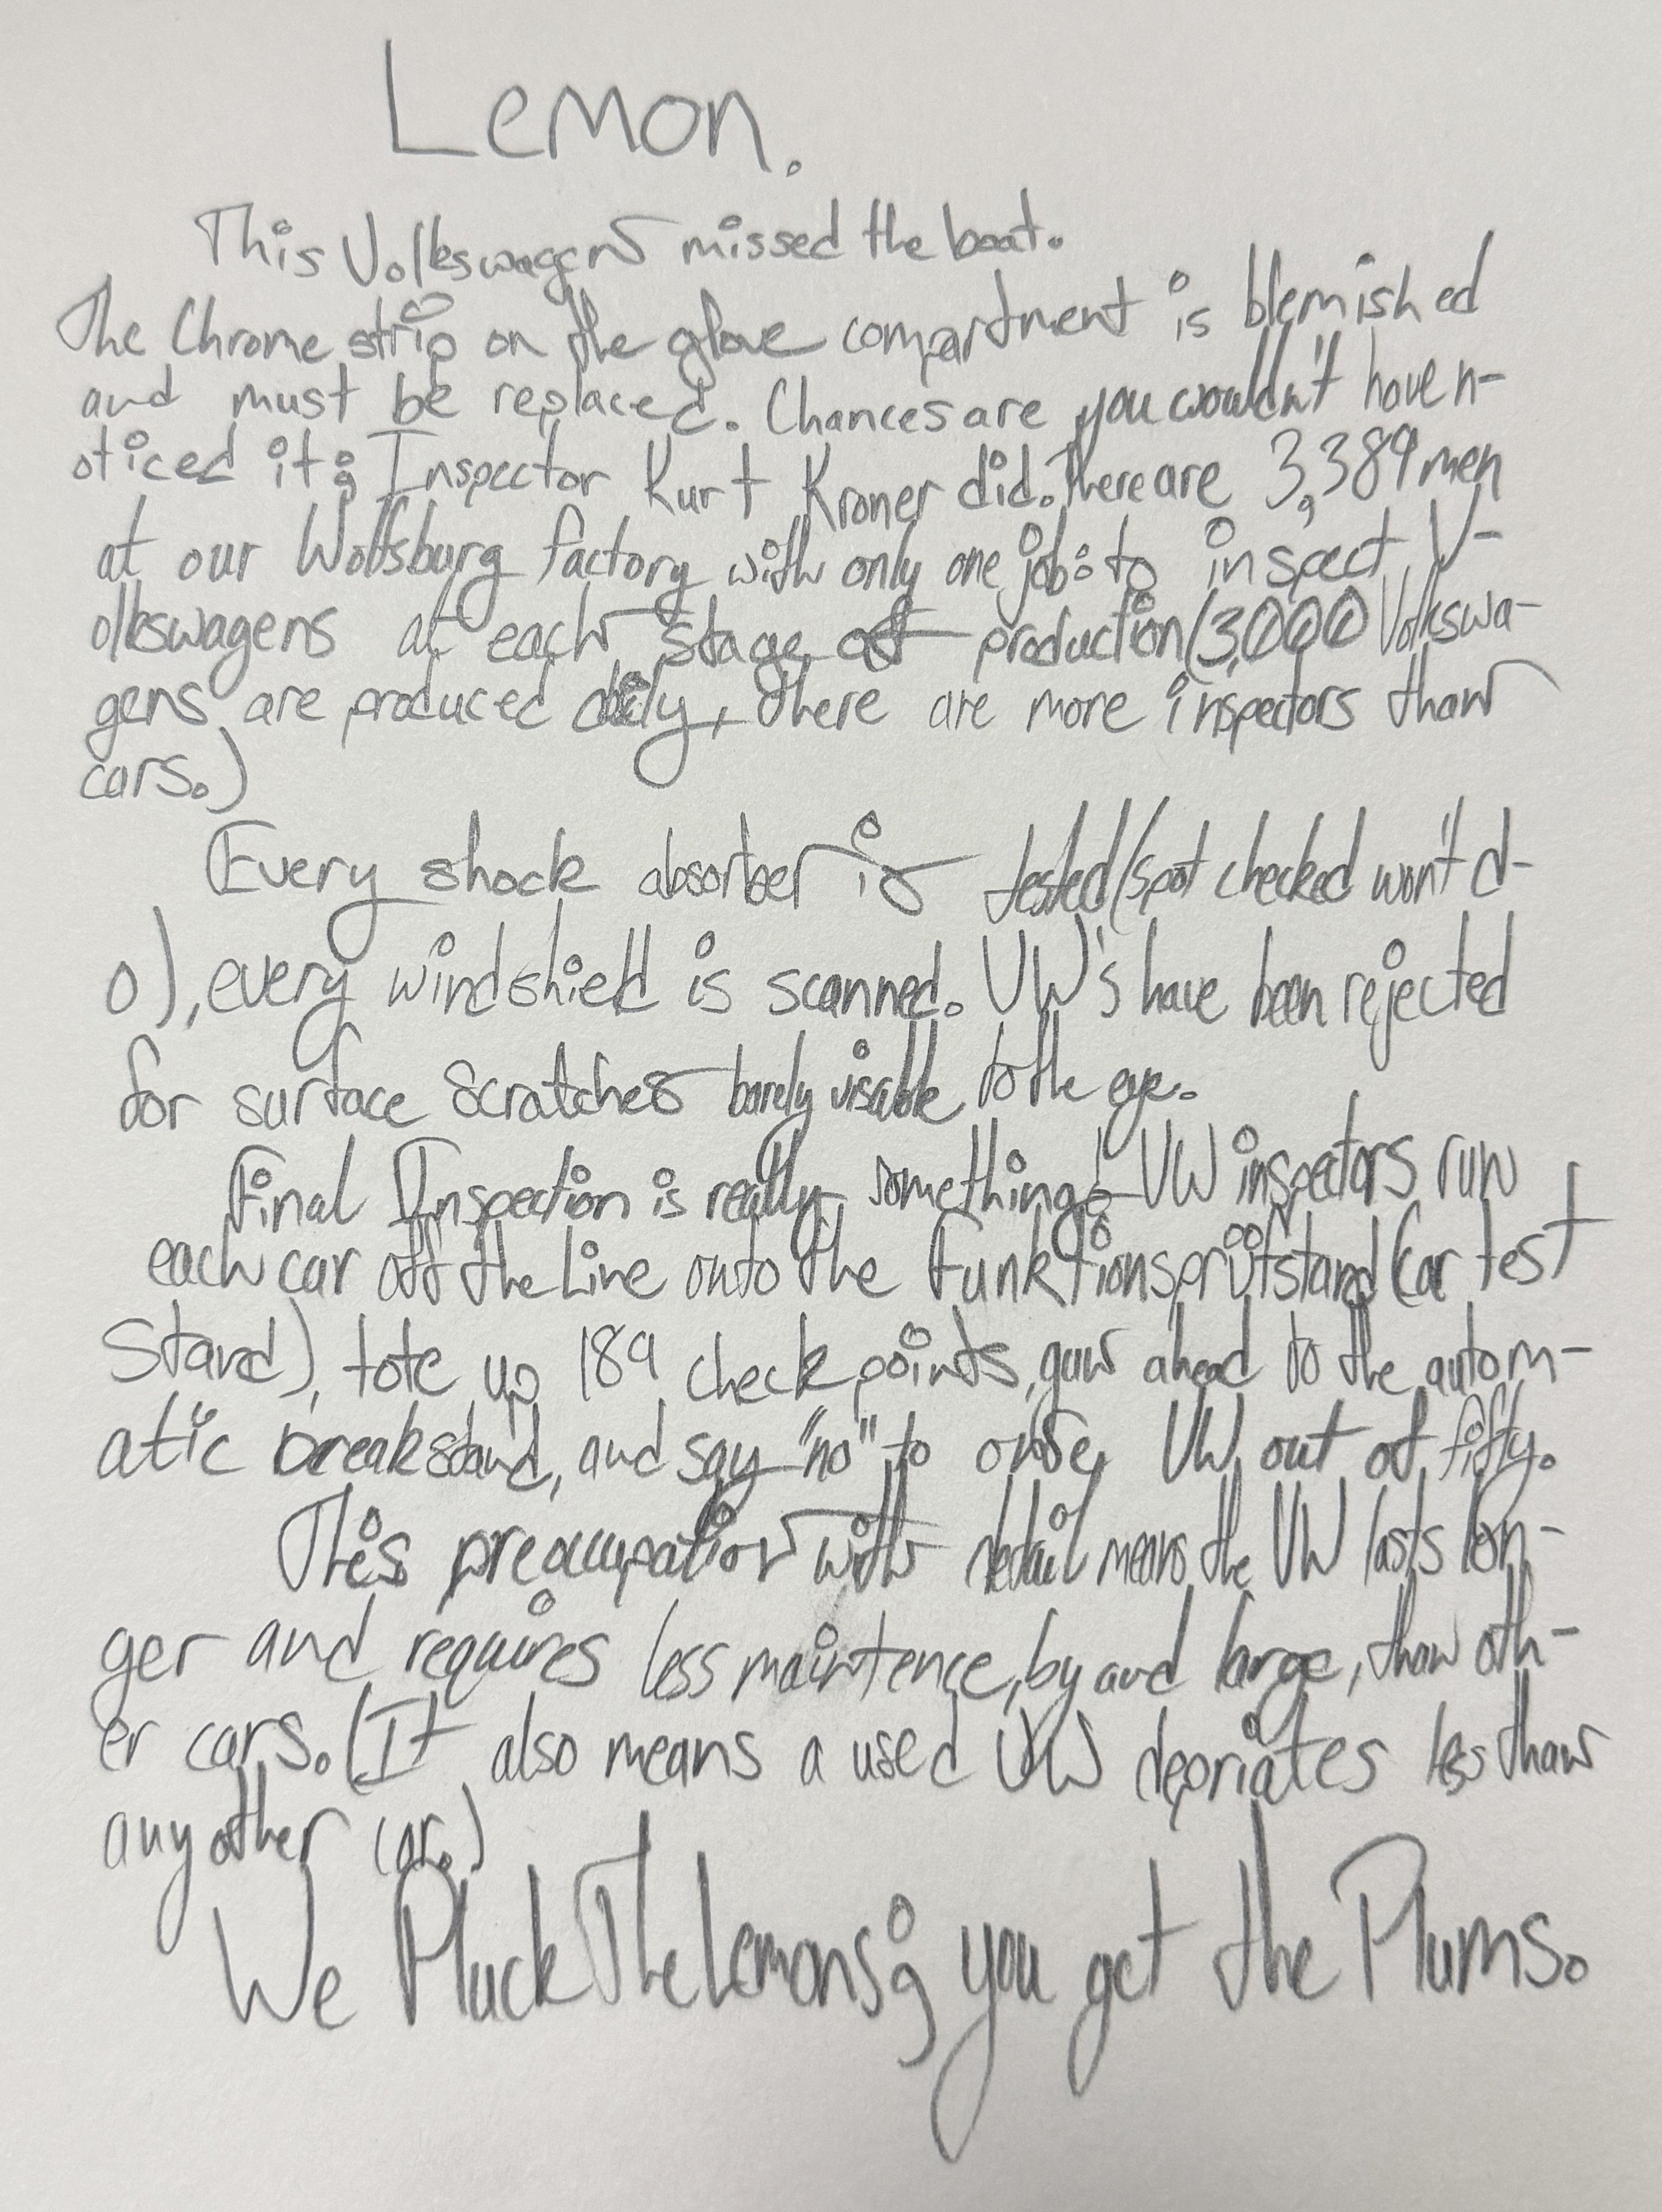 Lemon.
This Volkswagen missed the boat.
The Chrome strip on the glove compartment is blemished
and must be replaced. Chances are you wouldn't have n-
oticed it; Inspector Kurt Kroner did. There are 3,389 men
at our Wolfsburg factory with only one job: to inspect V-
olkswagens at each stage of production (3,000 Volkswa-
gens are produced daily, there are more inspectors than
cars.)
Every shock absorber is tested (spot checked won't d-
o), every windshield is scanned. VW's have been rejected
for surface scratches barely visible to the eye.
Final Inspection is really something! VW inspectors run
each car off the Line onto the Funktionsprüfstand (car test
Stand), tote up 189 check points, gun ahead to the autom-
atic break stand, and say "no" to one VW out of fifty.
This preoccupation with detail means the VW lasts lon-
ger and requires less maintence, by and large, than oth-
er cars. (It also means a used VW depriates less than
any other car.)
We Pluck The Lemons; you get the Plums.